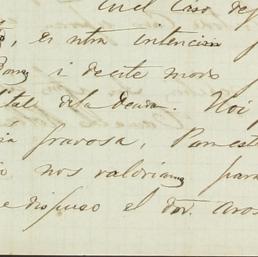 En el caso de
, es ntra intencion
i decite mos
tal de la deuda. Hoi
gravosa, Par est
nos valdriamos para
e dispuso el dor. Aros